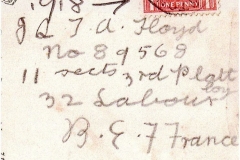 1918 →
ONE PENNY
J & T. A. Floyd
No 89568
11 sects 3rd Platt
32 Labour Coy
B. E. F France